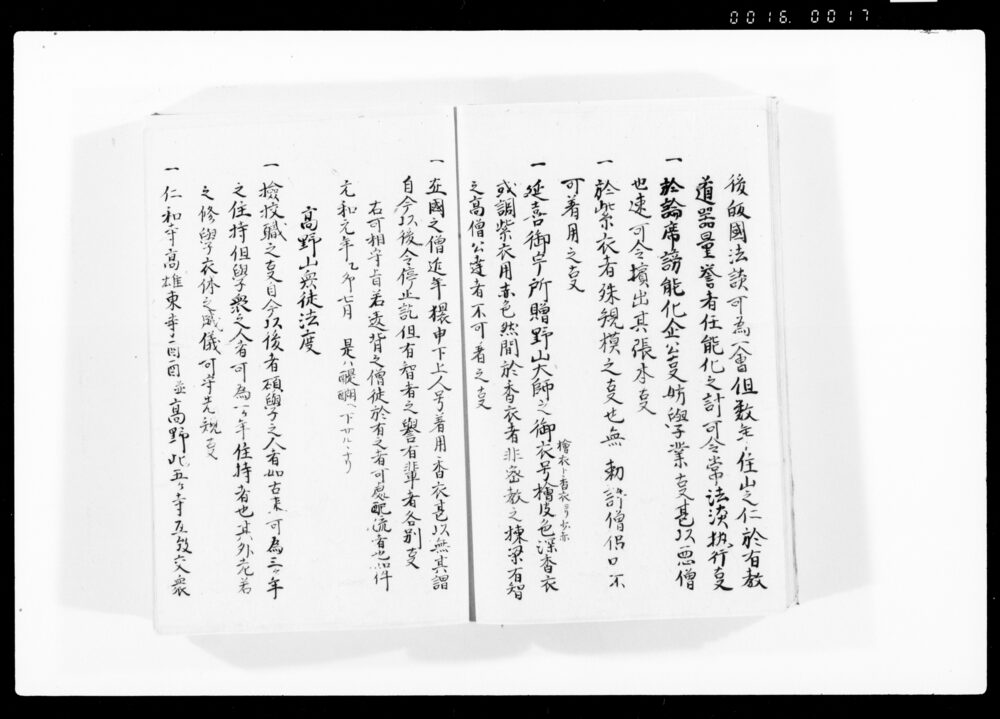 0016. 0017
後皈國法談可為一會但数年住山之仁於有教
道器量誉者任能化之計可令常法演執行事
一 於論席謗能化企公事妨學業事甚以悪僧
也速可令擯出其張本事
一 於紫衣者殊規模之事也無 勅許僧侶 不
可着用之事
一 延喜御宇所贈野山大師之御衣号檜皮色深香衣
檜衣ト香衣ヨリ少赤
或謂紫衣用赤色然間於香衣者非密教之棟梁有智
之高僧公達者不可着之事
一 在國之僧近年猥申下上人号着用香衣甚以無其謂
自今以後令停止訖但有智者之譽有輩者各別事
右可相守旨若違背之僧徒於有之者可處配流者也仍件
元和元年乙卯七月 是ハ醍醐ヘ下サルヽナリ
高野山衆徒法度
一 檢校職之事自今以後者碩學之人有如古来可為三ヶ年
之住持但學衆之人者可為一ヶ年住持者也其外老若
之修學衣体之威儀可守先規事
一 仁和寺高雄東寺 並高野此五ヶ寺互致交衆